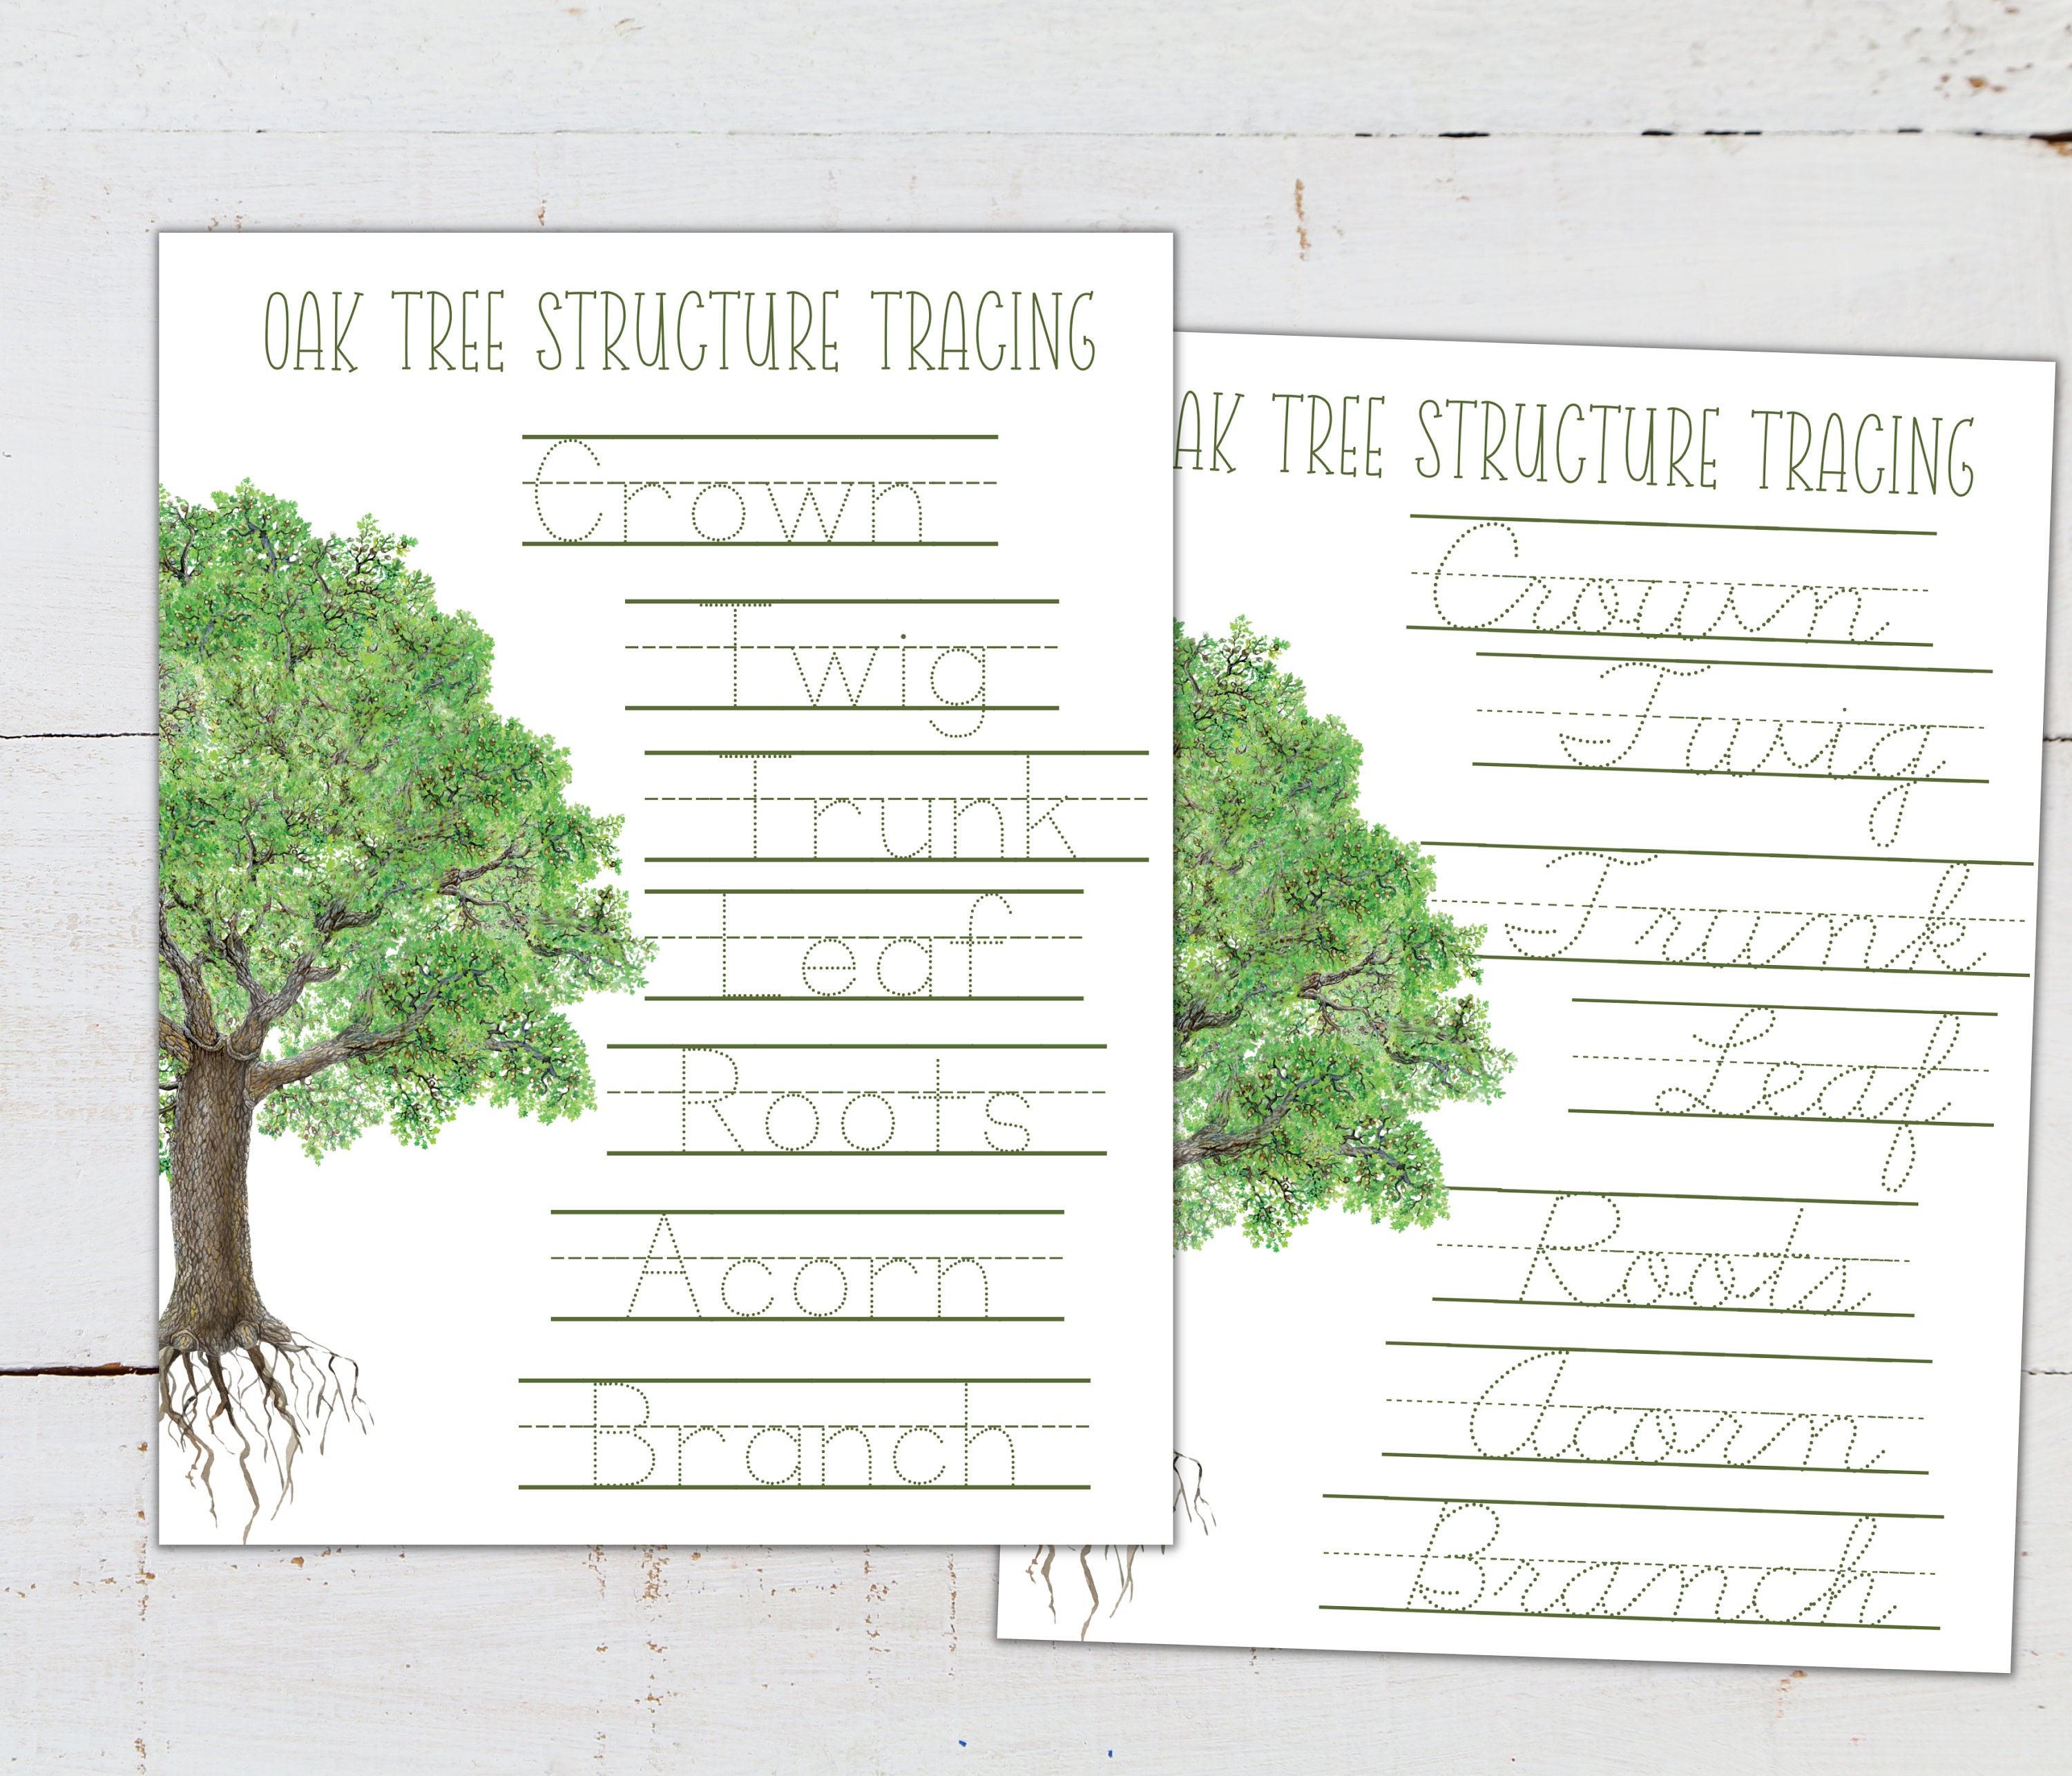 OAK TREE STRUCTURE TRACING
Crown
Twig
Trunk
Leaf
Roots
Acorn
Branch
AK TREE STRUCTURE TRACING
Crown
Twig
Trunk
Leaf
Roots
Acorn
Branch